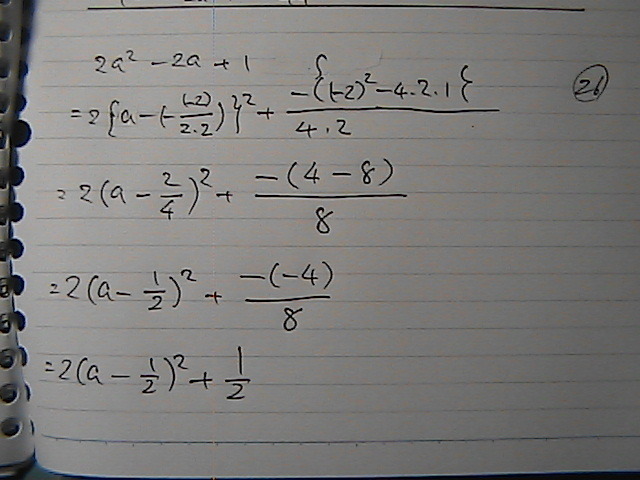 2a² - 2a + 1
= 2{a - (-(-2)/2·2)}² + -{(-2)² - 4·2·1}/4·2
(26)
= 2(a - 2/4)² + -(4 - 8)/8
= 2(a - 1/2)² + -(-4)/8
= 2(a - 1/2)² + 1/2